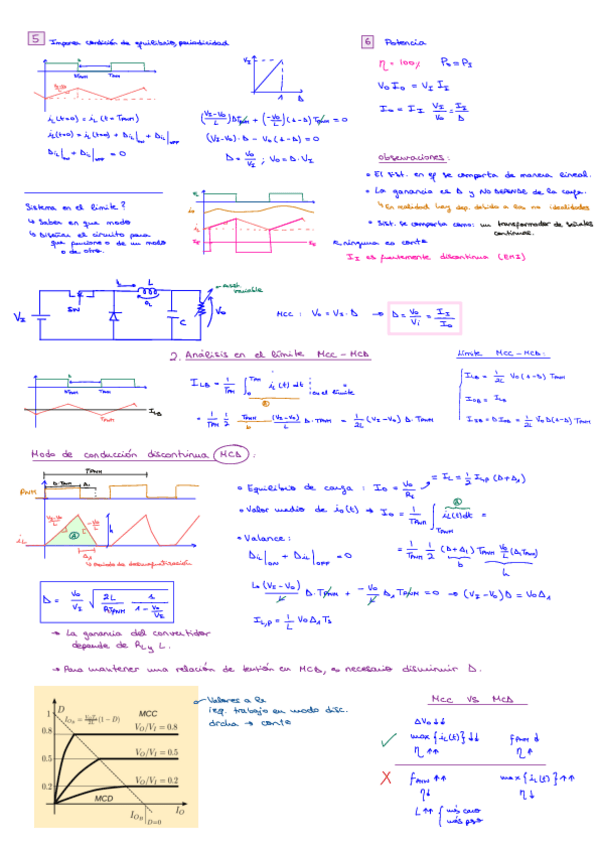 5 Imponer condición de equilibrio, periodicidad
V_I
1
D
i_L(t=0) = i_L (t=T_PWM)
i_L(t=0) = i_L(t=0) + Δi_L|_ON + Δi_L|_OFF
Δi_L|_ON + Δi_L|_OFF = 0
(V_I-V_O)/L D T_PWM + (-V_O)/L (1-D) T_PWM = 0
(V_I-V_O)·D - V_O(1-D) = 0
D = V_O/V_I ; V_O = D·V_I
6 Potencia
η = 100% P_O = P_I
V_O I_O = V_I I_I
I_O = I_I V_I/V_O = I_I/D
Observaciones:
• El sist. en ep se comporta de manera lineal.
• La ganancia es D y NO DEPENDE de la carga.
↳ En realidad hay dep. debido a las no idealidades
• Sist. se comporta como: un transformador de señales
continuas.
Sistema en el límite?
↳ Saber en que modo
↳ Diseñar el circuito para
que funcione o de un modo
o de otro.
ninguna es cont
I_I es fuertemente discontinua (EMI)
V_I
SW
L
C
V_O
variable
MCC : V_O = V_I·D → D = V_O/V_I = I_I/I_O
2. Análisis en el límite MCC-MCD
I_LB
I_LB = 1/T_PWM ∫_0^T_PWM i_L(t) dt | en el límite
= 1/T_PWM 1/2 T_PWM (V_I-V_O)/L D·T_PWM = 1/2L (V_I-V_O) D·T_PWM
Límite MCC-MCD:
I_LB = 1/2L V_O(1-D) T_PWM
I_OB = I_LB
I_IB = D I_OB = 1/2L V_O D(1-D) T_PWM
Modo de conducción discontinua (MCD):
T_PWM
D·T_PWM
PWM
(V_I-V_O)/L
-V_O/L
A
h
i_L
Δ_1
Periodo de desmagnetización
• Equilibrio de carga : I_O = V_O/R_L = I_L = 1/2 I_L,P (D+Δ_1)
• Valor medio de i_O(t) → I_O = 1/T_PWM ∫ i_L(t)dt =
= 1/T_PWM 1/2 (D+Δ_1) T_PWM V_O/L (Δ_1 T_PWM)
b
h
• Balance:
Δi_L|_ON + Δi_L|_OFF = 0
↳ (V_I-V_O)/L D·T_PWM + -V_O/L Δ_1 T_PWM = 0 → (V_I-V_O)D = V_O Δ_1
I_L,P = 1/L V_O Δ_1 T_S
D = V_O/V_I √(2L/(R T_PWM) 1/(1-V_O/V_I))
→ La ganancia del convertidor
depende de R_L y L.
→ Para mantener una relación de tensión en MCD, es necesario disminuir D.
D
1
0.8
0.5
0.2
0
MCC
V_O/V_I = 0.8
V_O/V_I = 0.5
V_O/V_I = 0.2
MCD
I_O
I_OB|_D=0
Valores a la
izq. trabajo en modo disc.
drcha → cont
MCC VS MCD
ΔV_O ↓↓
max{i_L(t)} ↓↓ f_PWM ↓
η ↑↑ η ↑
✓
X
f_PWM ↑↑ max{i_L(t)} ↑↑
η↓ η↓
L ↑↑ { más caro
más peso